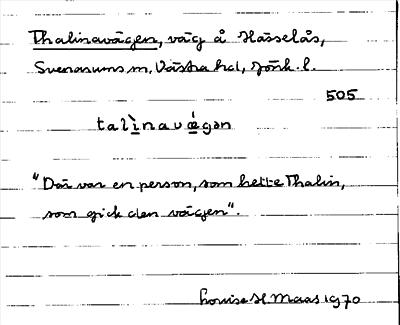 Thalinavägen, väg å Hässelås,
Svenarums sn, Västra hd, Jönk. l.
505
talìnavǽgən
"Där var en person, som hette Thalin,
som gick den vägen".
Louise H. Maas 1970